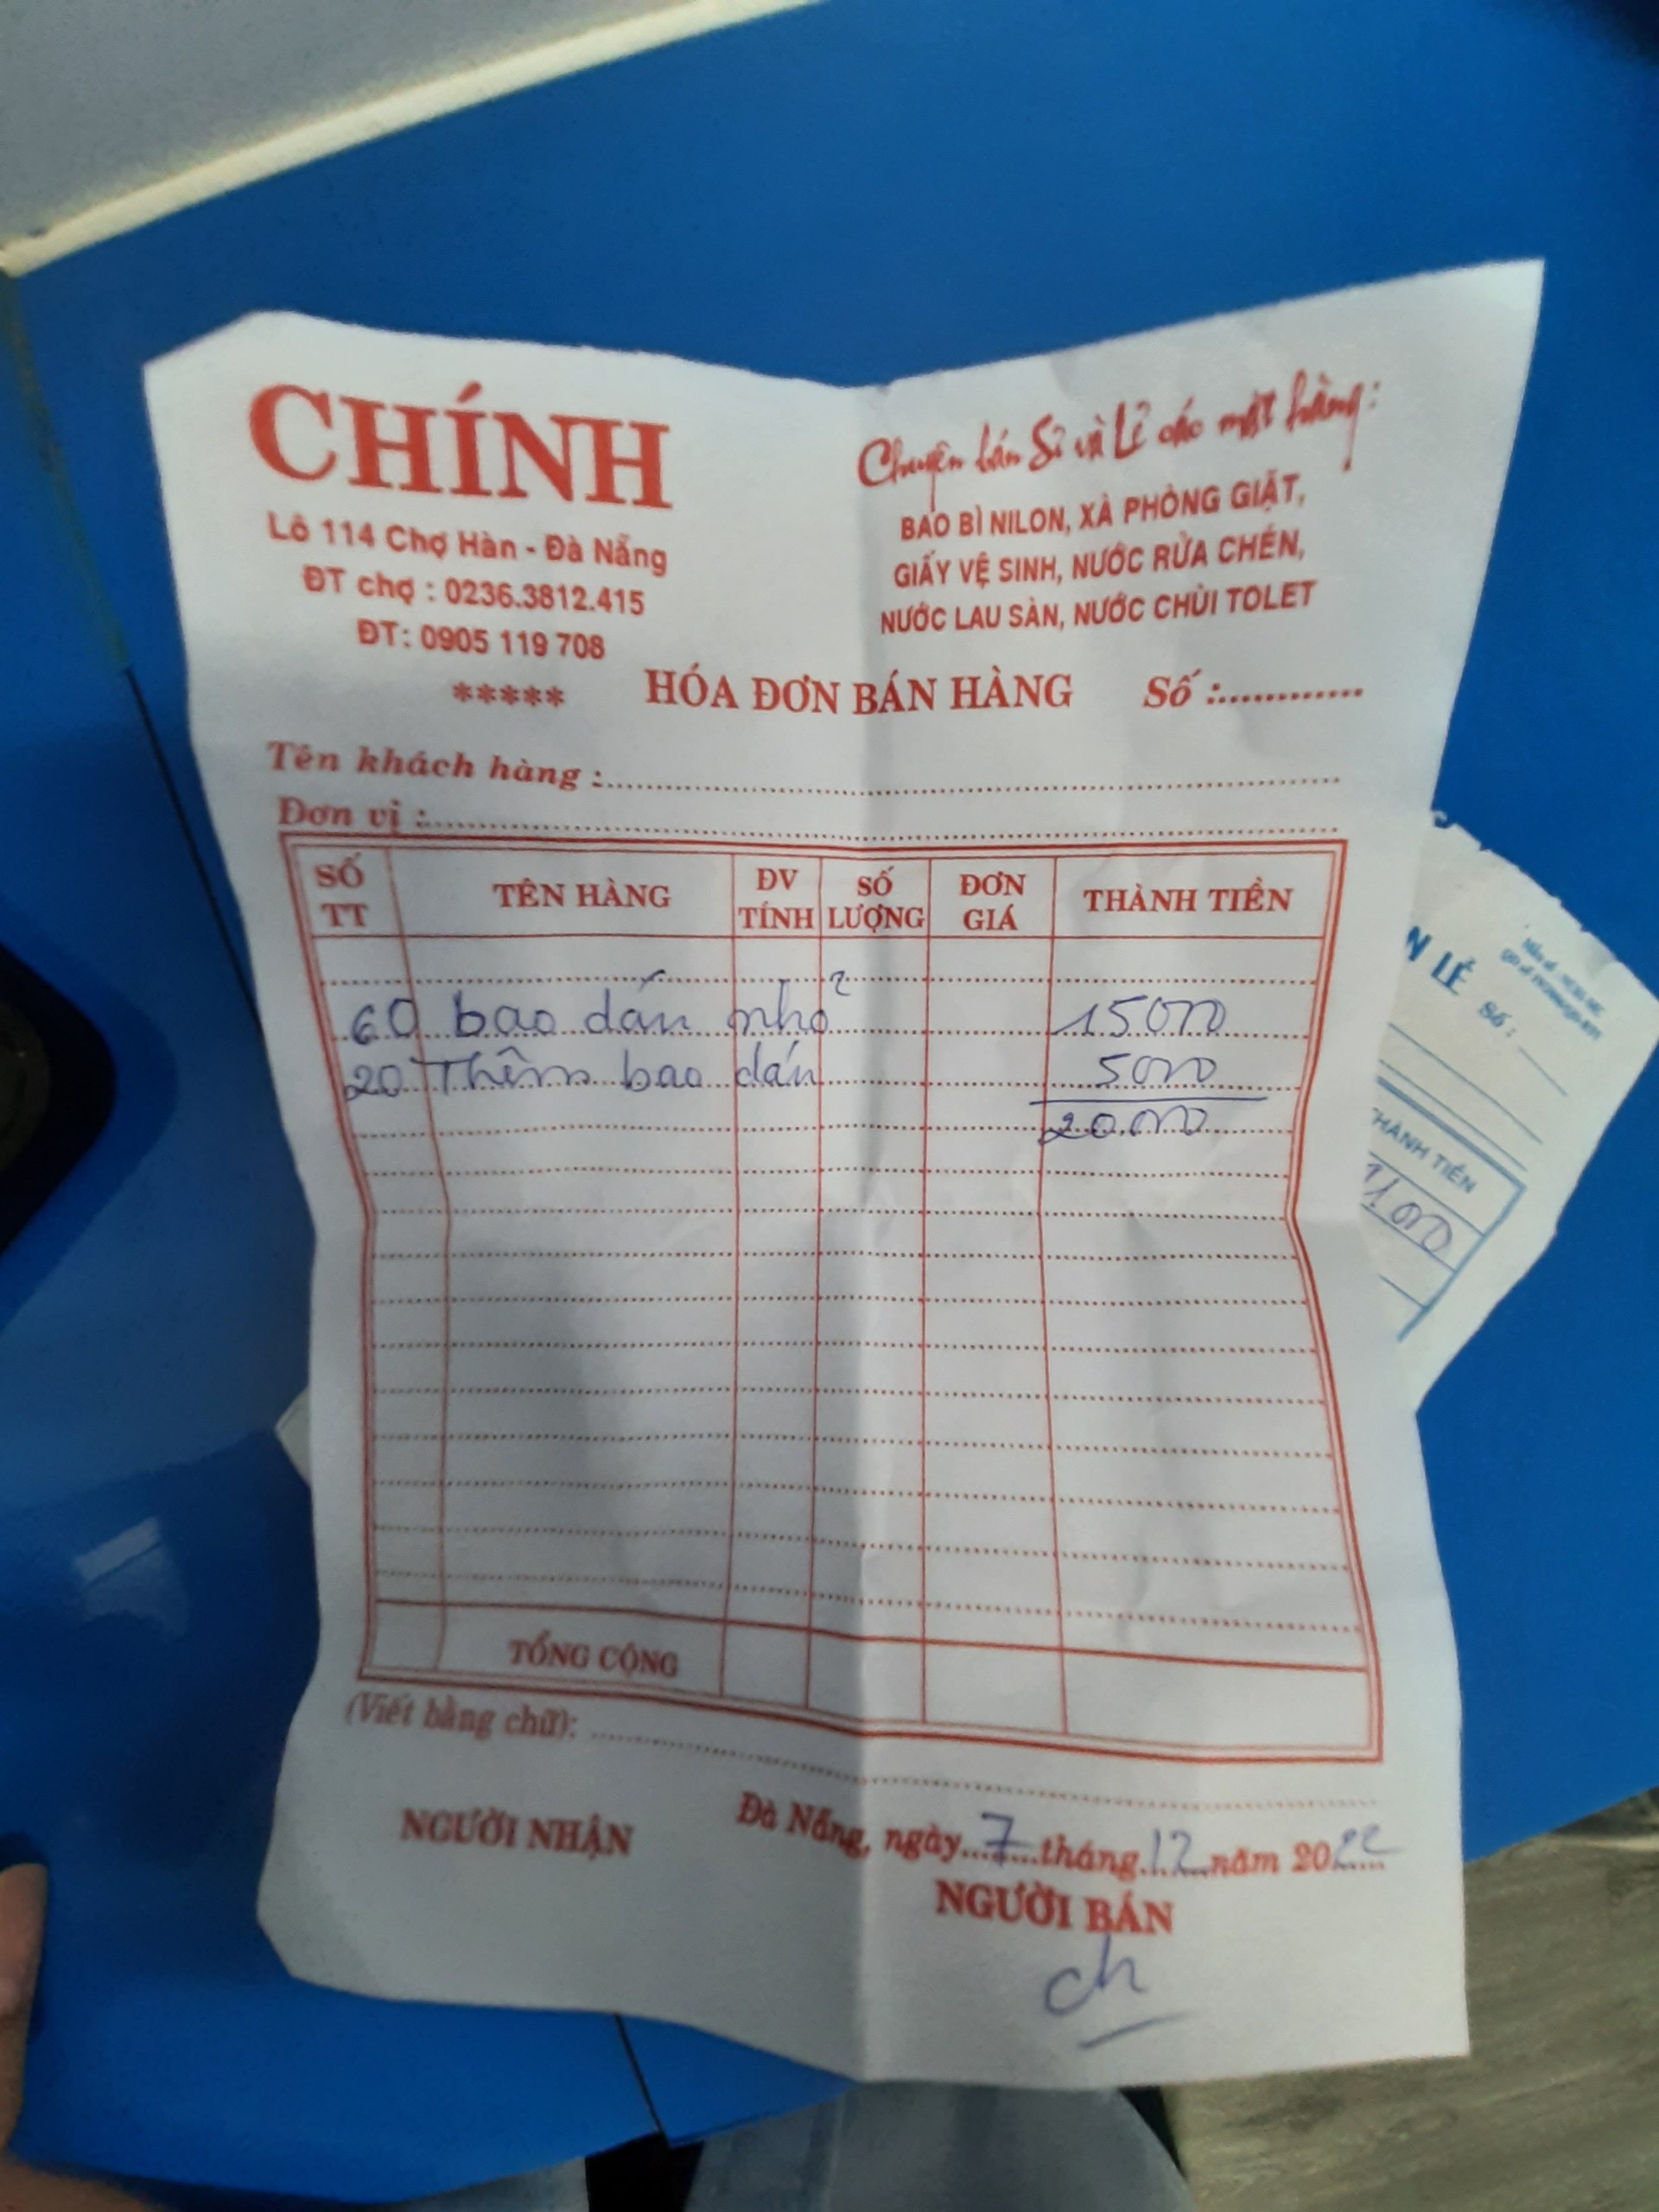 CHÍNH
Lô 114 Chợ Hàn - Đà Nẵng
ĐT chợ : 0236.3812.415
ĐT: 0905 119 708
*****
Chuyên bán Sỉ và Lẻ các mặt hàng:
BAO BÌ NILON, XÀ PHÒNG GIẶT,
GIẤY VỆ SINH, NƯỚC RỬA CHÉN,
NƯỚC LAU SÀN, NƯỚC CHÙI TOLET
HÓA ĐƠN BÁN HÀNG Số :............
Tên khách hàng :
Đơn vị :
SỐ TT TÊN HÀNG ĐV TÍNH SỐ LƯỢNG ĐƠN GIÁ THÀNH TIỀN
60 bao dán nhỏ 15000
20 Thêm bao dán 5000
20.000
TỔNG CỘNG
(Viết bằng chữ):
Đà Nẵng, ngày 7 tháng 12 năm 2022
NGƯỜI NHẬN
NGƯỜI BÁN
ch
N LẺ
Số :
THÀNH TIỀN